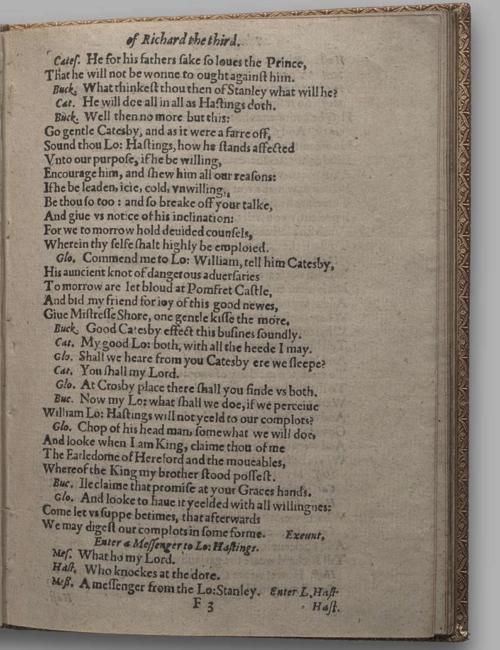 of Richard the third.
Cates. He for his fathers sake so loues the Prince,
That he will not be wonne to ought against him.
Buck. What thinkest thou then of Stanley what will he?
Cat. He will doe all in all as Hastings doth.
Buck. Well then no more but this:
Go gentle Catesby, and as it were a farre off,
Sound thou Lo: Hastings, how he stands affected
Vnto our purpose, if he be willing,
Encourage him, and shew him all our reasons:
If he be leaden, icie, cold, vnwilling,
Be thou so too : and so breake off your talke,
And giue vs notice of his inclination:
For we to morrow hold deuided counsels,
Wherein thy selfe shalt highly be emploied.
Glo. Commend me to Lo: William, tell him Catesby,
His auncient knot of dangerous aduersaries
To morrow are let bloud at Pomfret Castle,
And bid my friend for ioy of this good newes,
Giue Mistresse Shore, one gentle kisse the more,
Buck. Good Catesby effect this busines soundly.
Cat. My good Lo: both, with all the heede I may.
Glo. Shall we heare from you Catesby ere we sleepe?
Cat. You shall my Lord.
Glo. At Crosby place there shall you finde vs both.
Buc. Now my Lo: what shall we doe, if we perceiue
William Lo: Hastings will not yeeld to our complots?
Glo. Chop of his head man, somewhat we will doe,
And looke when I am King, claime thou of me
The Earledome of Hereford and the moueables,
Whereof the King my brother stood possest.
Buc. Ile claime that promise at your Graces hands.
Glo. And looke to haue it yeelded with all willingnes:
Come let vs suppe betimes, that afterwards
We may digest our complots in some forme. Exeunt,
Enter a Messenger to Lo: Hastings.
Mes. What ho my Lord.
Hast. Who knockes at the dore.
Mess. A messenger from the Lo: Stanley. Enter L. Hast.
F 3 Hast.